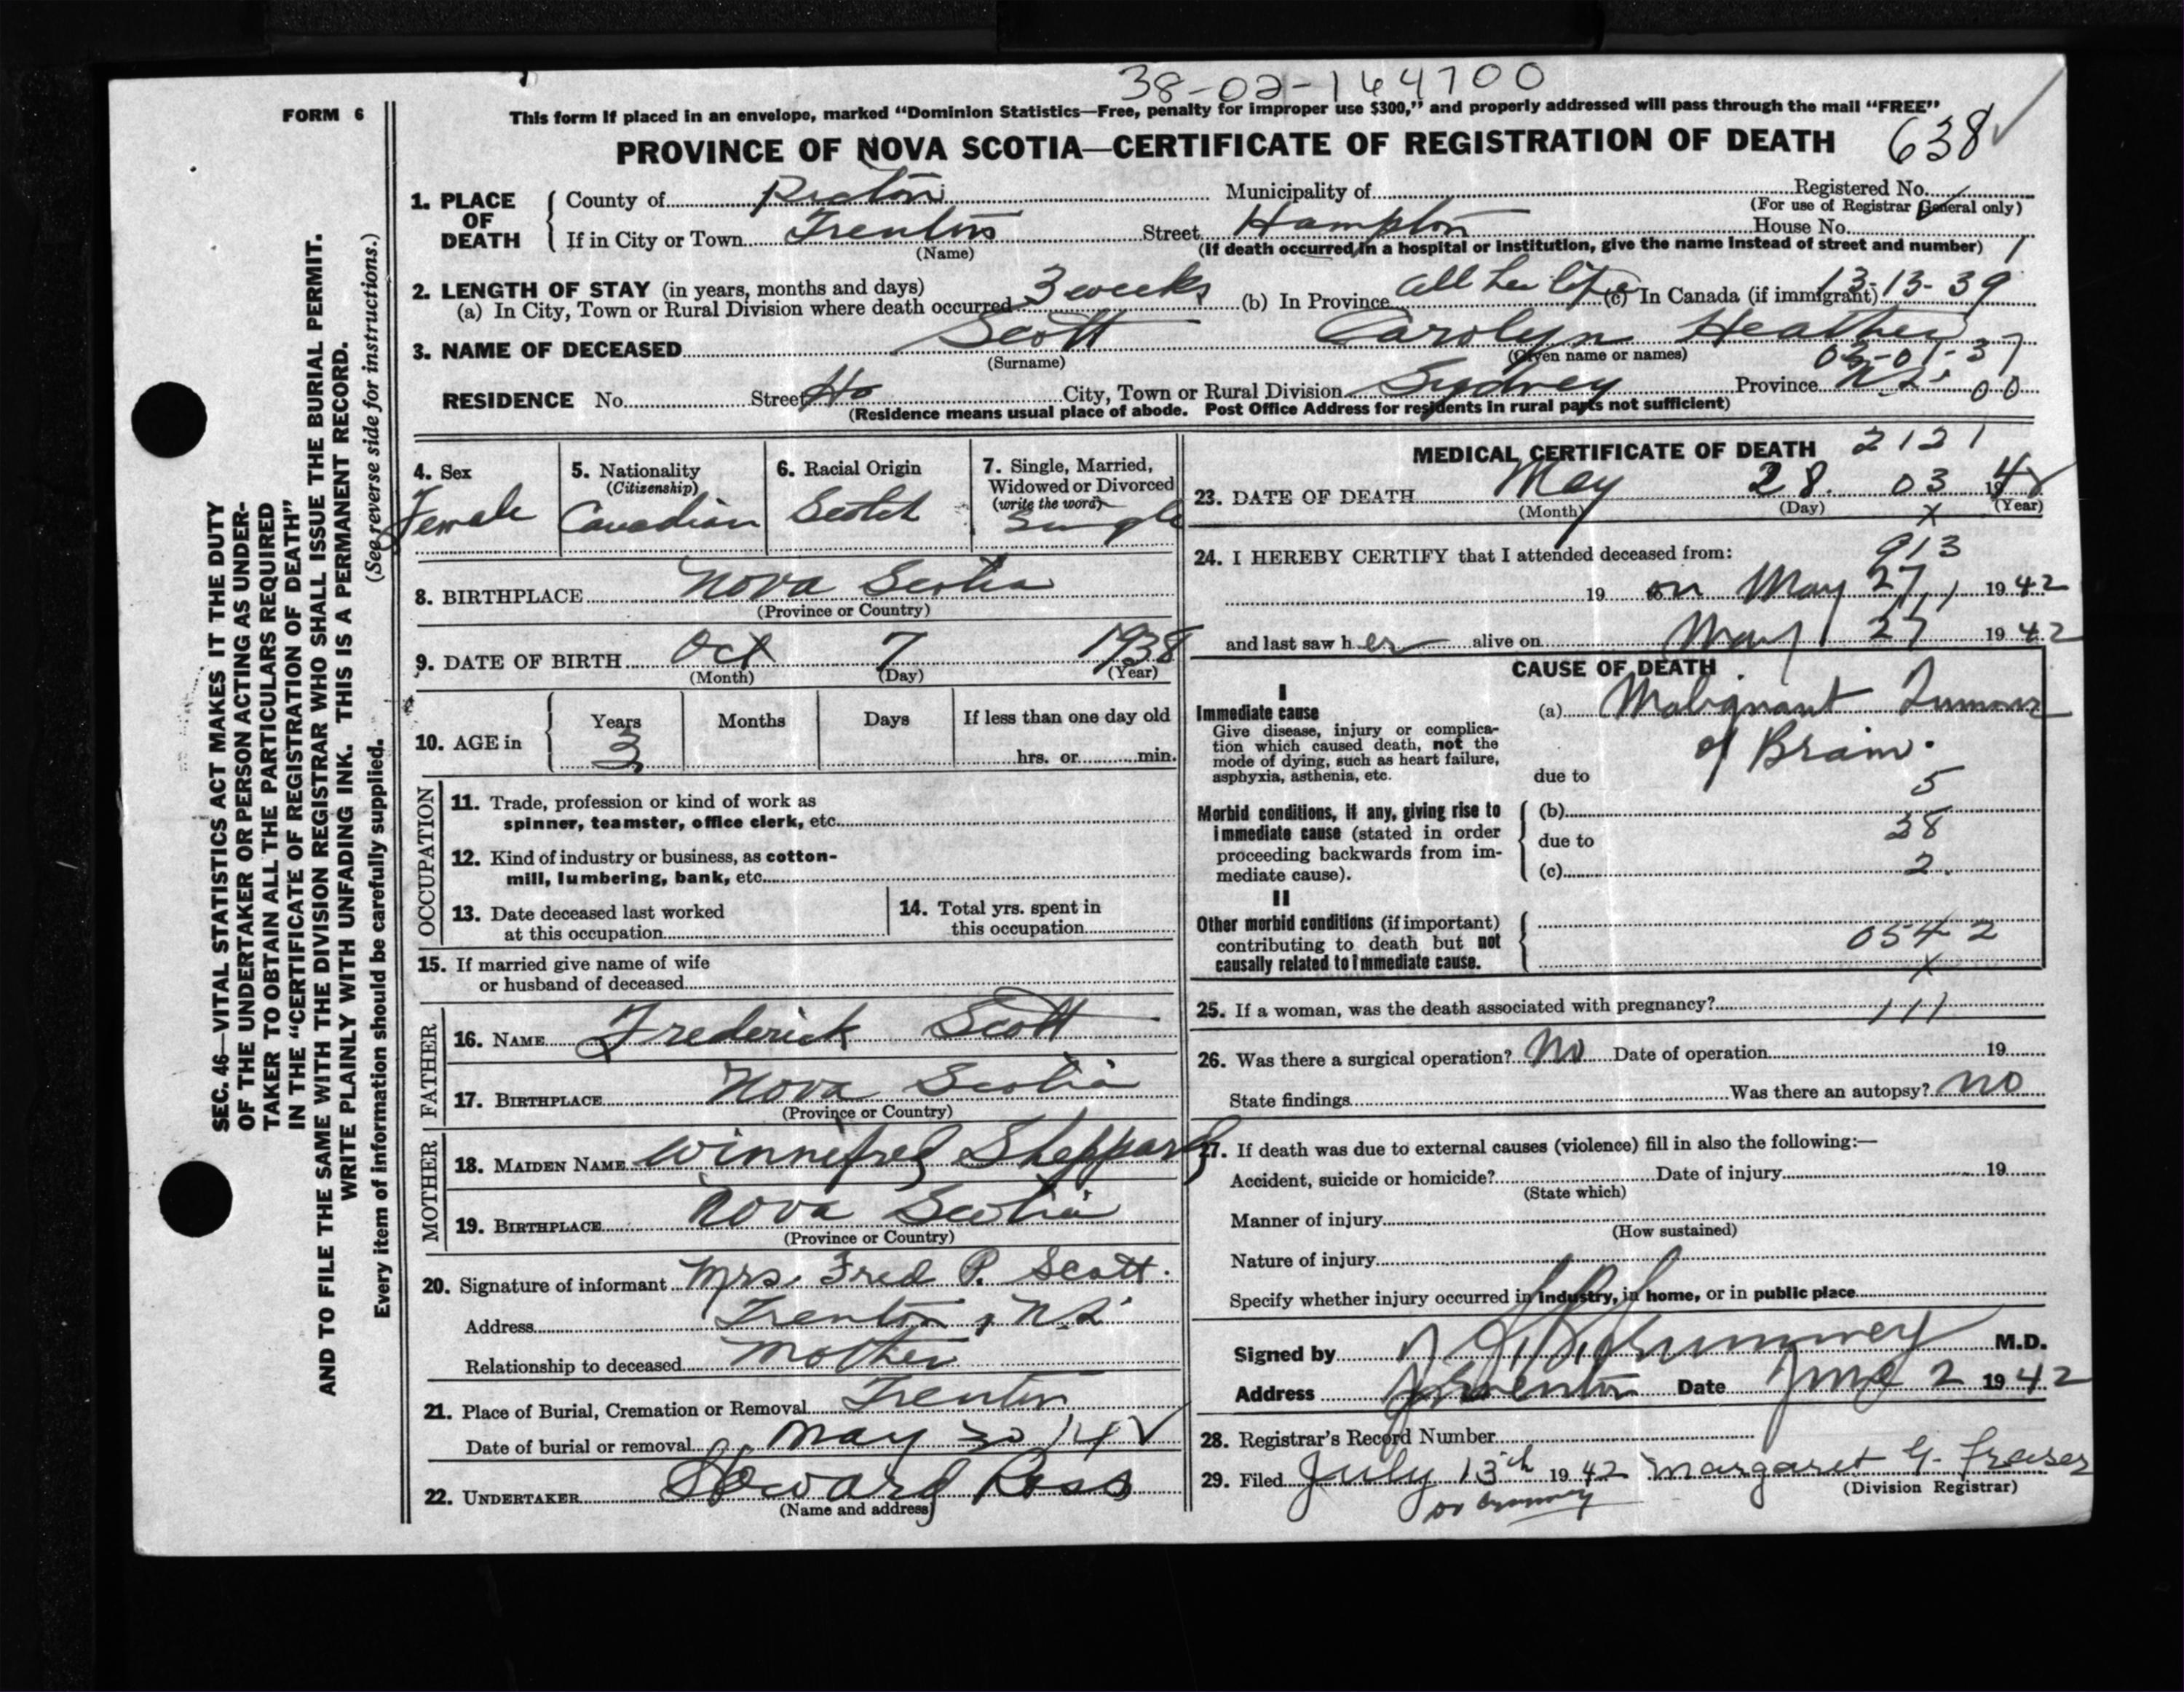 38-02-144700
FORM 6
This form if placed in an envelope, marked "Dominion Statistics—Free, penalty for improper use $300," and properly addressed will pass through the mail "FREE"
PROVINCE OF NOVA SCOTIA—CERTIFICATE OF REGISTRATION OF DEATH 638
1. PLACE OF DEATH
County of Pictou Municipality of Registered No.
(For use of Registrar General only)
If in City or Town Trenton Street Hampton House No.
(Name) (If death occurred in a hospital or institution, give the name instead of street and number) 1
2. LENGTH OF STAY (in years, months and days)
(a) In City, Town or Rural Division where death occurred 3 weeks (b) In Province all her life (c) In Canada (if immigrant) 13-13-39
3. NAME OF DECEASED Scott Carolyn Heather
(Surname) (Given name or names) 03-01-37
RESIDENCE No. Street City, Town or Rural Division Sydney Province N.S. 00
(Residence means usual place of abode. Post Office Address for residents in rural parts not sufficient)
4. Sex
Female
5. Nationality
(Citizenship)
Canadian
6. Racial Origin
Scotch
7. Single, Married,
Widowed or Divorced
(write the word)
Single
8. BIRTHPLACE Nova Scotia
(Province or Country)
9. DATE OF BIRTH Oct 7 1938
(Month) (Day) (Year)
10. AGE in
Years Months Days If less than one day old
3 hrs. or min.
OCCUPATION
11. Trade, profession or kind of work as
spinner, teamster, office clerk, etc.
12. Kind of industry or business, as cotton-
mill, lumbering, bank, etc.
13. Date deceased last worked
at this occupation
14. Total yrs. spent in
this occupation
15. If married give name of wife
or husband of deceased
FATHER
16. NAME Frederick Scott
17. BIRTHPLACE Nova Scotia
(Province or Country)
MOTHER
18. MAIDEN NAME Winnifred Sheppard
19. BIRTHPLACE Nova Scotia
(Province or Country)
20. Signature of informant Mrs. Fred P. Scott.
Address Trenton, N.S.
Relationship to deceased Mother
21. Place of Burial, Cremation or Removal Trenton
Date of burial or removal May 30
22. UNDERTAKER Howard Ross
(Name and address)
MEDICAL CERTIFICATE OF DEATH 2121
23. DATE OF DEATH May 28. 03 19
(Month) (Day) (Year)
x
24. I HEREBY CERTIFY that I attended deceased from:
913
19 on May 27, 1942
and last saw her alive on May 27 1942
CAUSE OF DEATH
I
Immediate cause
Give disease, injury or complica-
tion which caused death, not the
mode of dying, such as heart failure,
asphyxia, asthenia, etc.
(a) Malignant Tumour
of Brain.
due to
5
Morbid conditions, if any, giving rise to
immediate cause (stated in order
proceeding backwards from im-
mediate cause).
(b)
38
due to
(c) 2.
II
Other morbid conditions (if important)
contributing to death but not
causally related to immediate cause.
0542
x
25. If a woman, was the death associated with pregnancy? 111
26. Was there a surgical operation? No Date of operation 19
State findings Was there an autopsy? No
27. If death was due to external causes (violence) fill in also the following:—
Accident, suicide or homicide? Date of injury 19
(State which)
Manner of injury
(How sustained)
Nature of injury
Specify whether injury occurred in industry, in home, or in public place
Signed by M.D.
Address Trenton Date June 2 1942
28. Registrar's Record Number
29. Filed July 13th 1942 Margaret G. Fraser
(Division Registrar)
SEC. 46—VITAL STATISTICS ACT MAKES IT THE DUTY
OF THE UNDERTAKER OR PERSON ACTING AS UNDER-
TAKER TO OBTAIN ALL THE PARTICULARS REQUIRED
IN THE "CERTIFICATE OF REGISTRATION OF DEATH"
AND TO FILE THE SAME WITH THE DIVISION REGISTRAR WHO SHALL ISSUE THE BURIAL PERMIT.
WRITE PLAINLY WITH UNFADING INK. THIS IS A PERMANENT RECORD.
Every item of information should be carefully supplied. (See reverse side for instructions.)